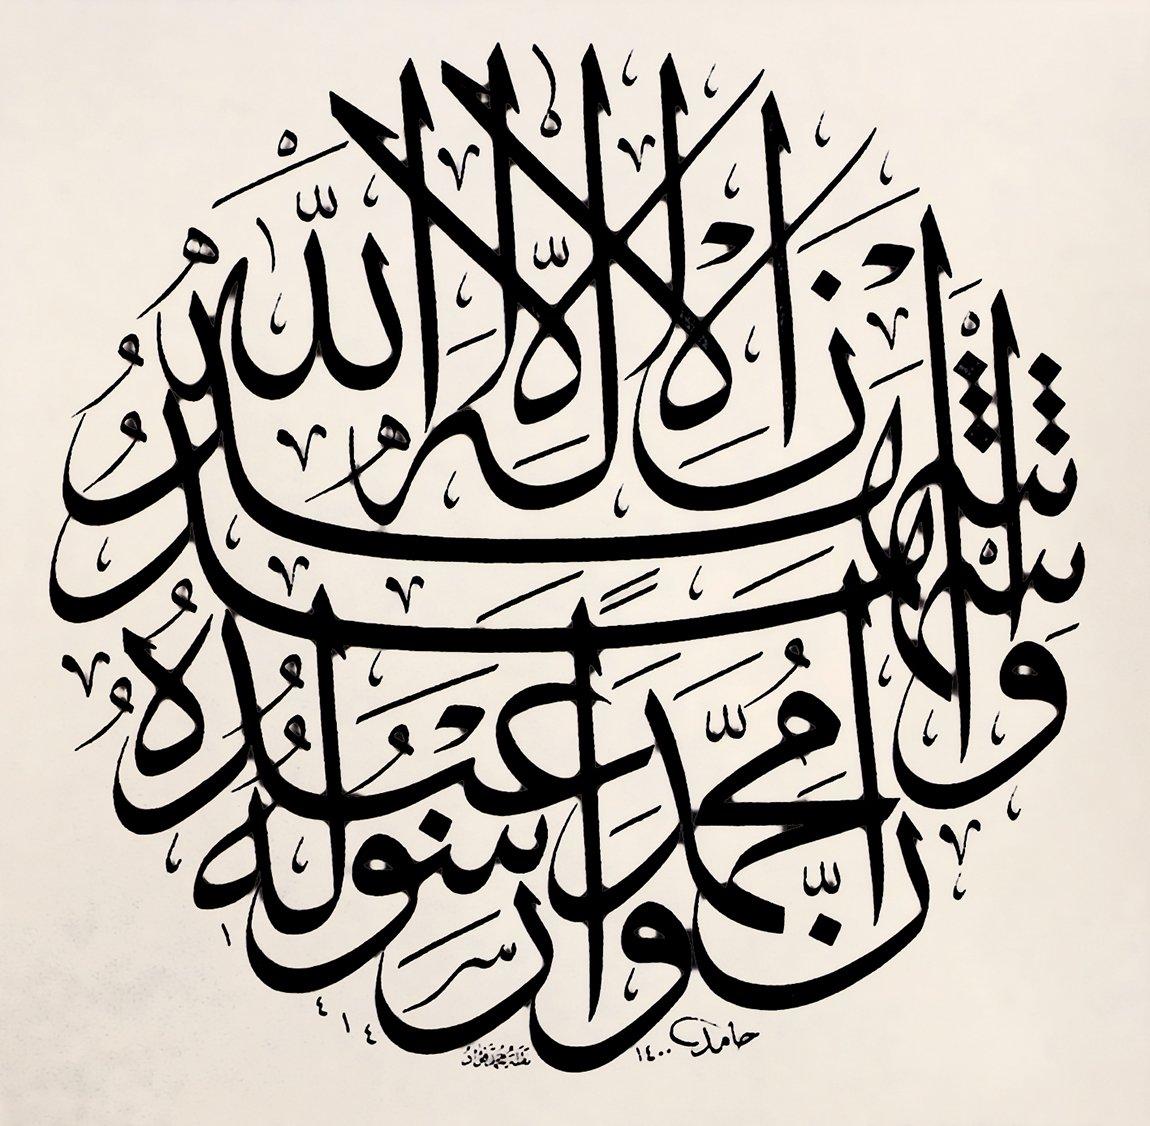 أشهد أن لا إله إلا الله
وأشهد أن محمدًا
عبده ورسوله
حامد ١٤٠٠
نقله محمد فؤاد
١٤١٤